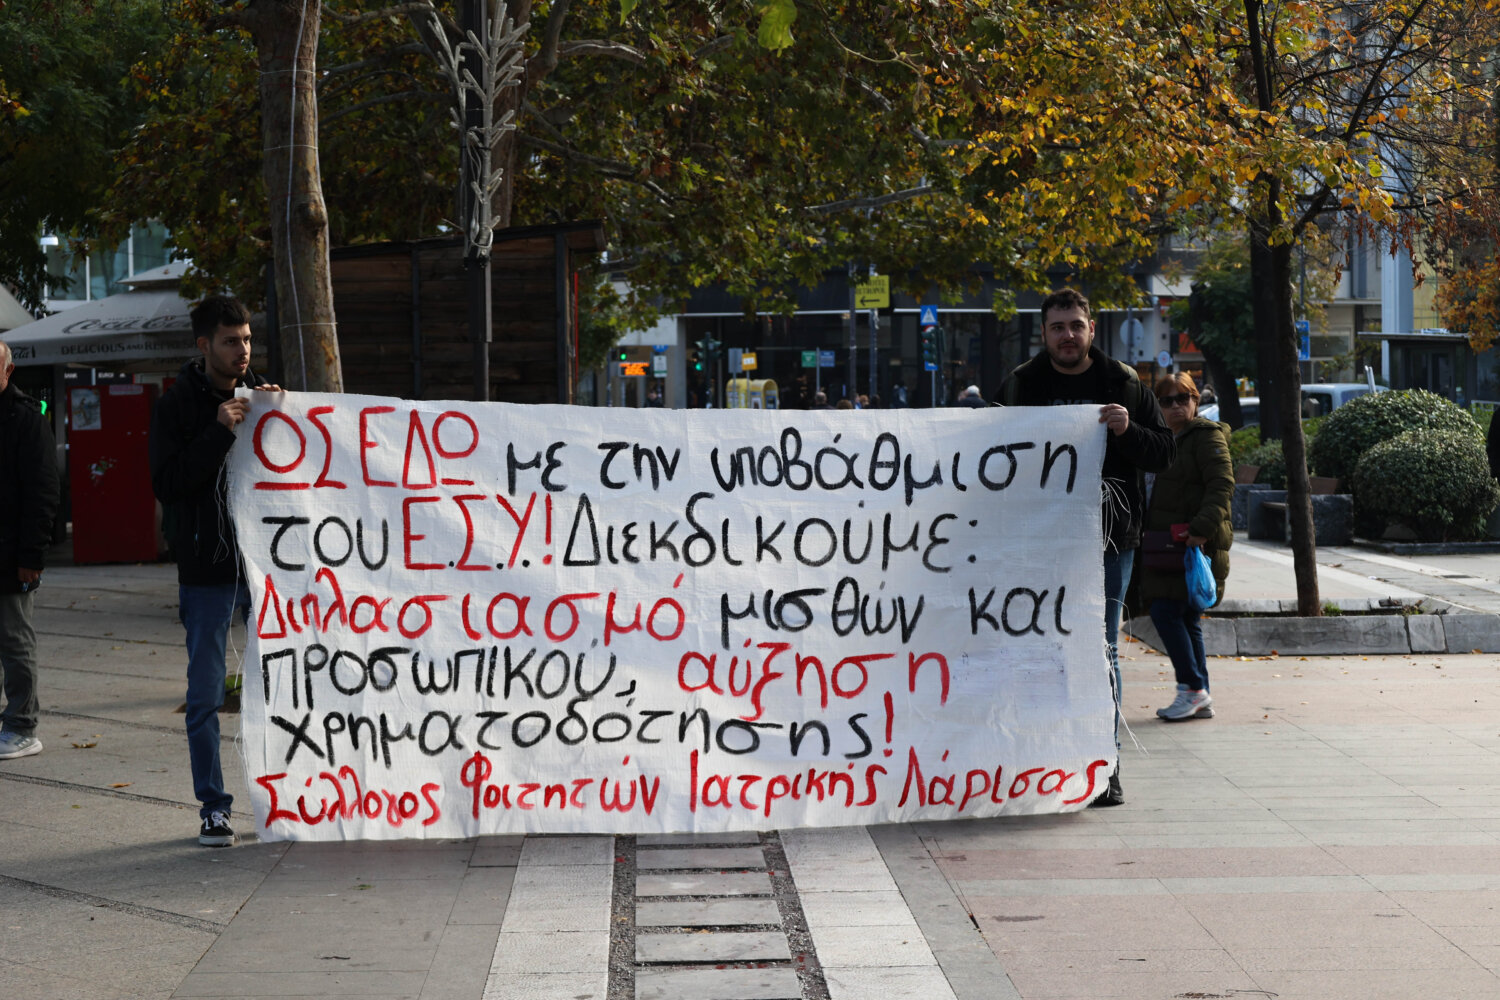 ΩΣ ΕΔΩ με την υποβάθμιση
του Ε.Σ.Υ.! Διεκδικούμε:
Διπλασιασμό μισθών και
προσωπικού, αύξηση
χρηματοδότησης!
Σύλλογος Φοιτητών Ιατρικής Λάρισας
Coca-Cola
DELICIOUS AND REFRESHING